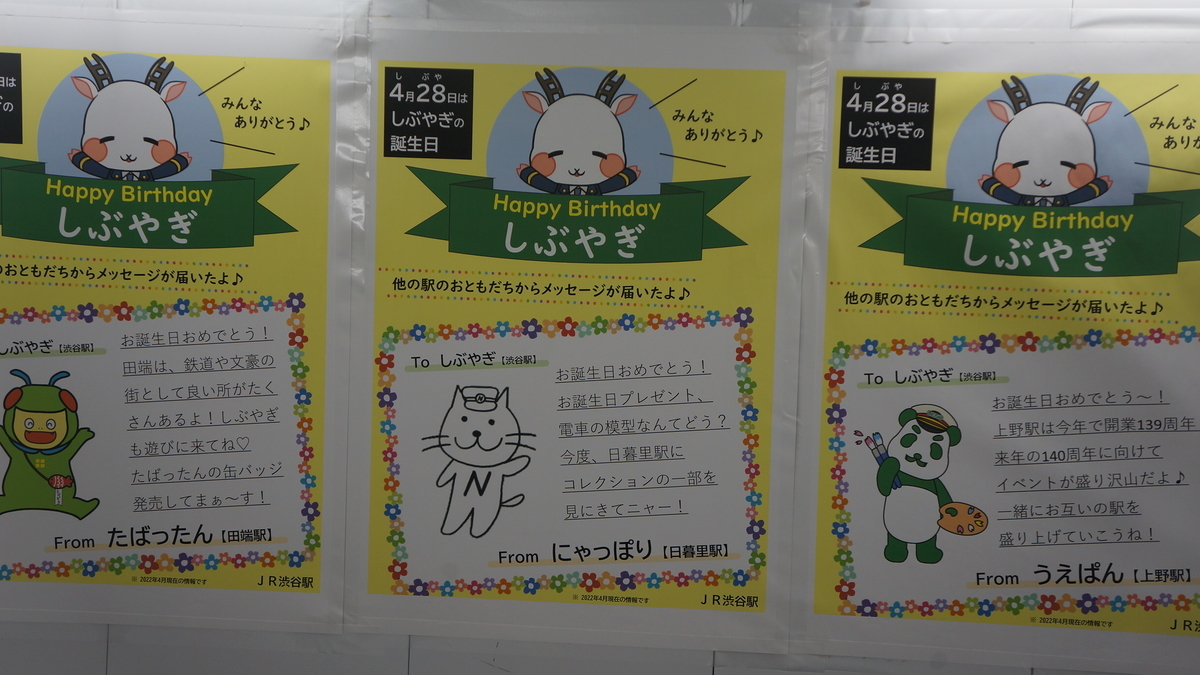 日は
の
みんな
ありがとう♪
Happy Birthday
しぶやぎ
のおともだちからメッセージが届いたよ♪
しぶやぎ【渋谷駅】
お誕生日おめでとう！
田端は、鉄道や文豪の
街として良い所がたく
さんあるよ！しぶやぎ
も遊びに来てね♡
たばったんの缶バッジ
発売してまぁ〜す！
From たばったん【田端駅】
※ 2022年4月現在の情報です
ＪＲ渋谷駅
し ぶや
4月28日は
しぶやぎの
誕生日
みんな
ありがとう♪
Happy Birthday
しぶやぎ
他の駅のおともだちからメッセージが届いたよ♪
To しぶやぎ【渋谷駅】
N
N
お誕生日おめでとう！
お誕生日プレゼント、
電車の模型なんてどう？
今度、日暮里駅に
コレクションの一部を
見にきてニャー！
From にゃっぽり【日暮里駅】
※ 2022年4月現在の情報です
ＪＲ渋谷駅
し ぶや
4月28日は
しぶやぎの
誕生日
みんな
ありが
Happy Birthday
しぶやぎ
他の駅のおともだちからメッセージが届いたよ♪
To しぶやぎ【渋谷駅】
お誕生日おめでとう〜！
上野駅は今年で開業139周年
来年の140周年に向けて
イベントが盛り沢山だよ♪
一緒にお互いの駅を
盛り上げていこうね！
From うえぱん【上野駅】
※ 2022年4月現在の情報です
ＪＲ渋